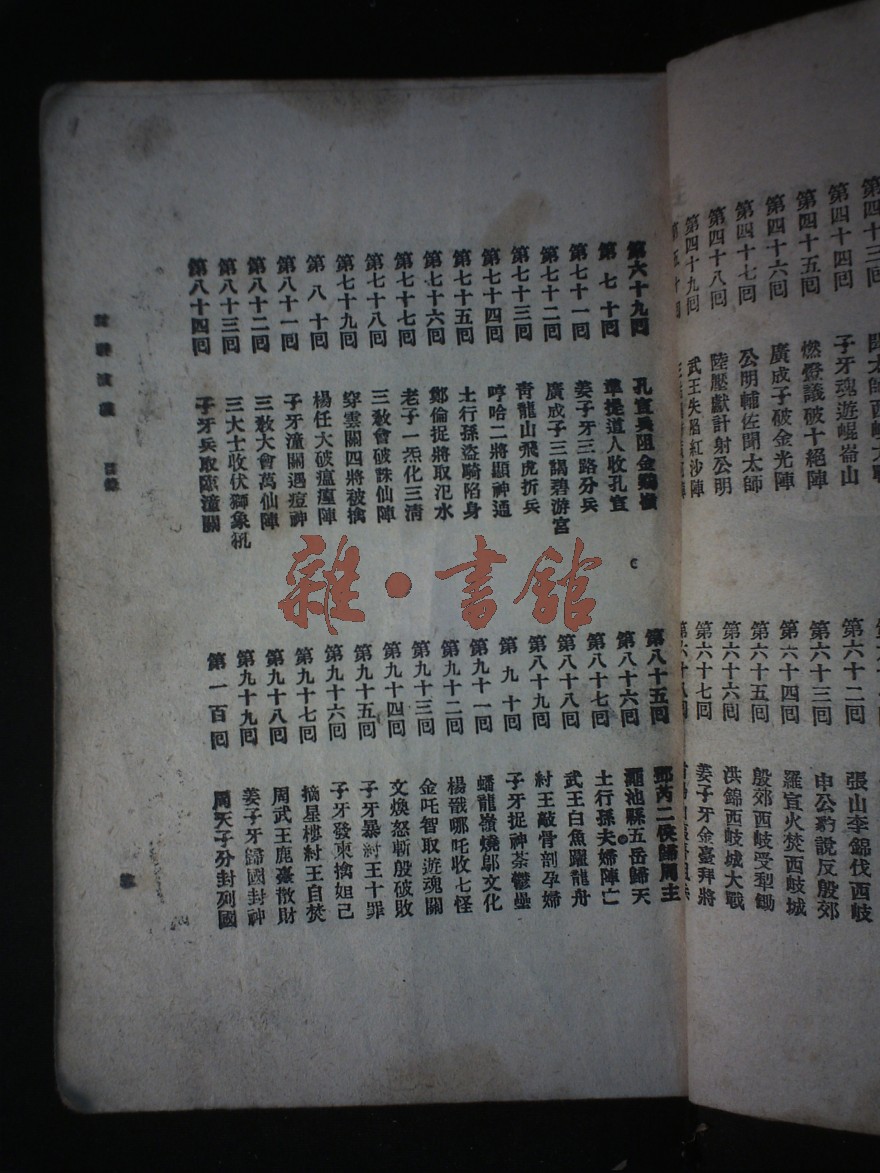 第四十三回 聞太師西岐大戰
第四十四回 子牙魂遊崐崙山
第四十五回 燃燈議破十絕陣
第四十六回 廣成子破金光陣
第四十七回 公明輔佐聞太師
第四十八回 陸壓獻計射公明
第四十九回 武王失陷紅沙陣
第六十二回 張山李錦伐西岐
第六十三回 申公豹說反殷郊
第六十四回 羅宣火焚西岐城
第六十五回 殷郊西岐受犁鋤
第六十六回 洪錦西岐城大戰
第六十七回 姜子牙金臺拜將
第六十八回
第六十九回 孔宣兵阻金鷄嶺
第七十回 準提道人收孔宣
第七十一回 姜子牙三路分兵
第七十二回 廣成子三謁碧游宮
第七十三回 青龍山飛虎折兵
第七十四回 哼哈二將顯神通
第七十五回 土行孫盜騎陷身
第七十六回 鄭倫捉將取汜水
第七十七回 老子一炁化三清
第七十八回 三敎會破誅仙陣
第七十九回 穿雲關四將被擒
第八十回 楊任大破瘟𤷄陣
第八十一回 子牙潼關遇痘神
第八十二回 三敎大會萬仙陣
第八十三回 三大士收伏獅象犼
第八十四回 子牙兵取臨潼關
第八十五回 鄧芮二侯歸周主
第八十六回 澠池縣五岳歸天
第八十七回 土行孫夫婦陣亡
第八十八回 武王白魚躍龍舟
第八十九回 紂王敲骨剖孕婦
第九十回 子牙捉神荼鬱壘
第九十一回 蟠龍嶺燒鄔文化
第九十二回 楊戩哪吒收七怪
第九十三回 金吒智取遊魂關
第九十四回 文煥怒斬殷破敗
第九十五回 子牙暴紂王十罪
第九十六回 子牙發柬擒妲己
第九十七回 摘星樓紂王自焚
第九十八回 周武王鹿臺散財
第九十九回 姜子牙歸國封神
第一百回 周天子分封列國
封神演義 目錄
雜·書館